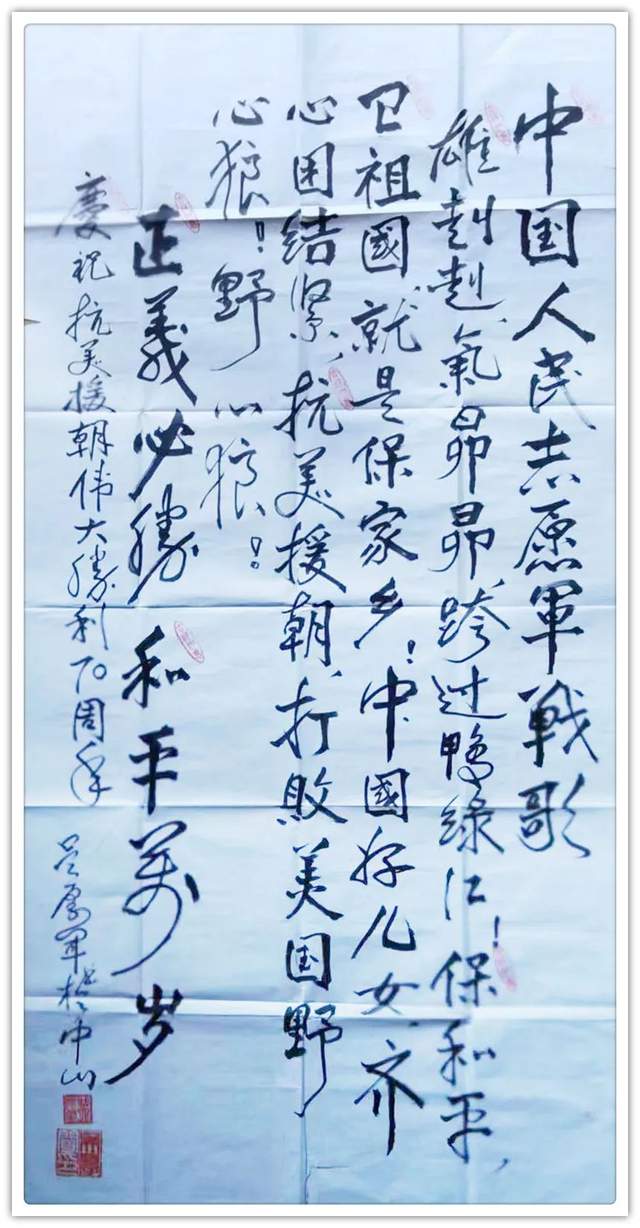 中国人民志愿軍戦歌
雄赳赳,氣昂昂,跨过鴨绿江!保和平,
卫祖國,就是保家乡!中國好儿女,齐
心团结緊,抗美援朝,打敗美国野
心狼!野心狼!
正義必勝 和平萬岁
慶祝抗美援朝伟大勝利70周年
军於中山